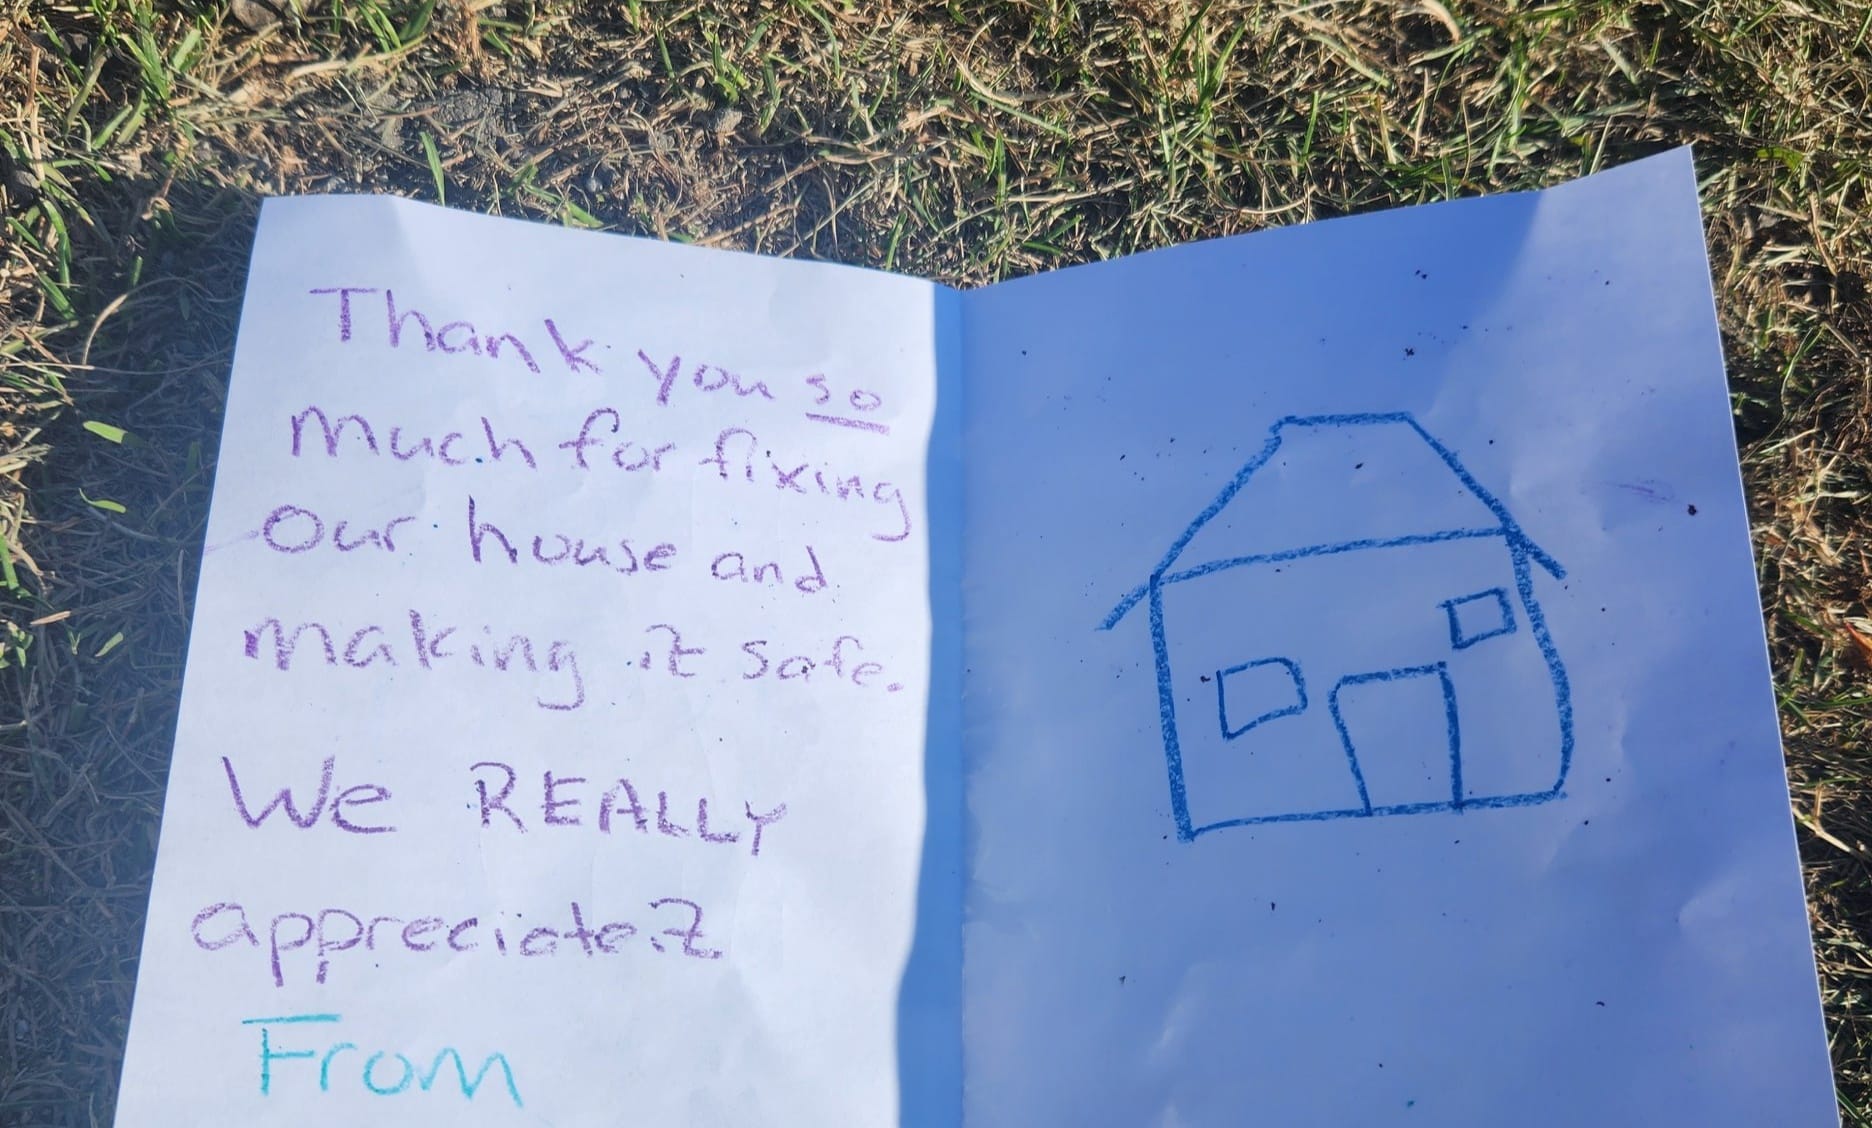 Thank you so
much for fixing
our house and
making it safe.
We REALLY
appreciate it
From